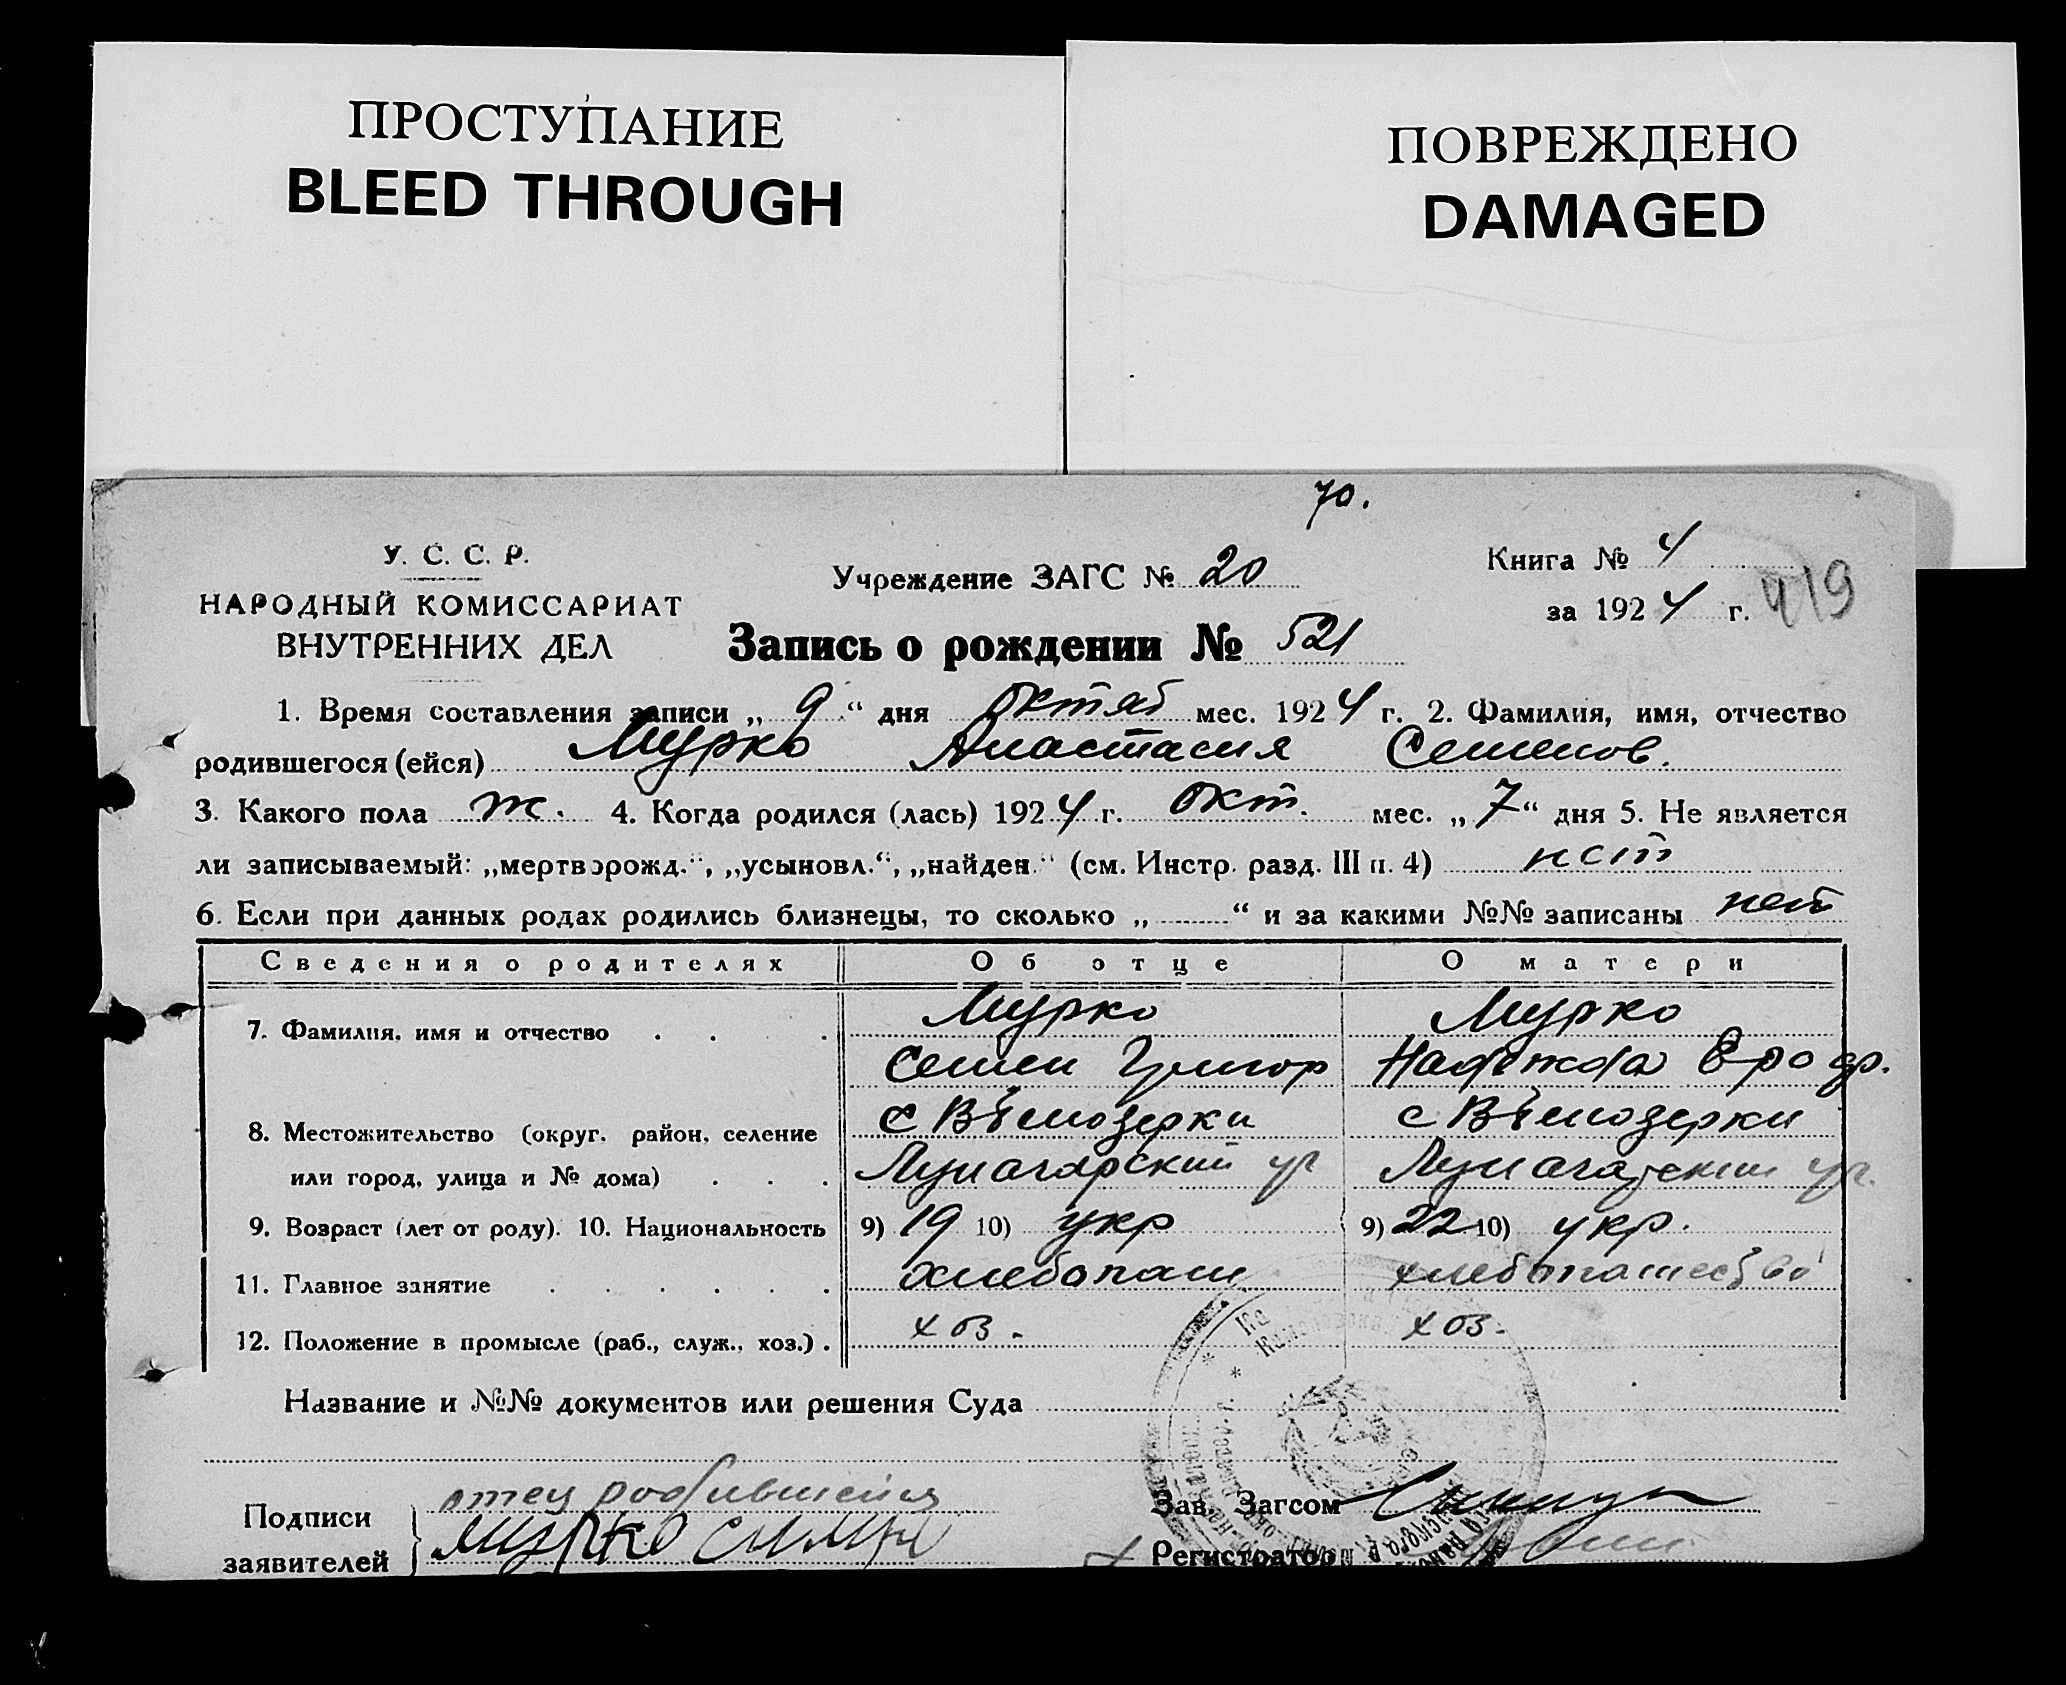 ПРОСТУПАНИЕ
BLEED THROUGH
ПОВРЕЖДЕНО
DAMAGED
70.
У. С. С. Р.
НАРОДНЫЙ КОМИССАРИАТ
ВНУТРЕННИХ ДЕЛ
Учреждение ЗАГС № 20
Запись о рождении № 521
Книга № 4
за 1924 г. 419
1. Время составления записи „ 9 “ дня октяб мес. 1924 г. 2. Фамилия, имя, отчество
родившегося (ейся) Мурко Анастасия Семенов.
3. Какого пола ж. 4. Когда родился (лась) 1924 г. окт. мес. „ 7 “ дня 5. Не является
ли записываемый: „мертворожд.“, „усыновл.“, „найден.“ (см. Инстр. разд. III п. 4) нет
6. Если при данных родах родились близнецы, то сколько „ “ и за какими №№ записаны нет
Сведения о родителях Об отце О матери
7. Фамилия, имя и отчество Мурко Мурко
Семен Григор Надежда Ерофр.
8. Местожительство (округ, район, селение с Белозерки с Белозерки
или город, улица и № дома)
9. Возраст (лет от роду). 10. Национальность 9) 19 10) укр 9) 22 10) укр.
11. Главное занятие хлебопаш хлебопашество
12. Положение в промысле (раб., служ., хоз.) хоз. хоз.
Название и №№ документов или решения Суда
Подписи
заявителей
отец родившейся
Мурко
Зав. Загсом
Регистратор